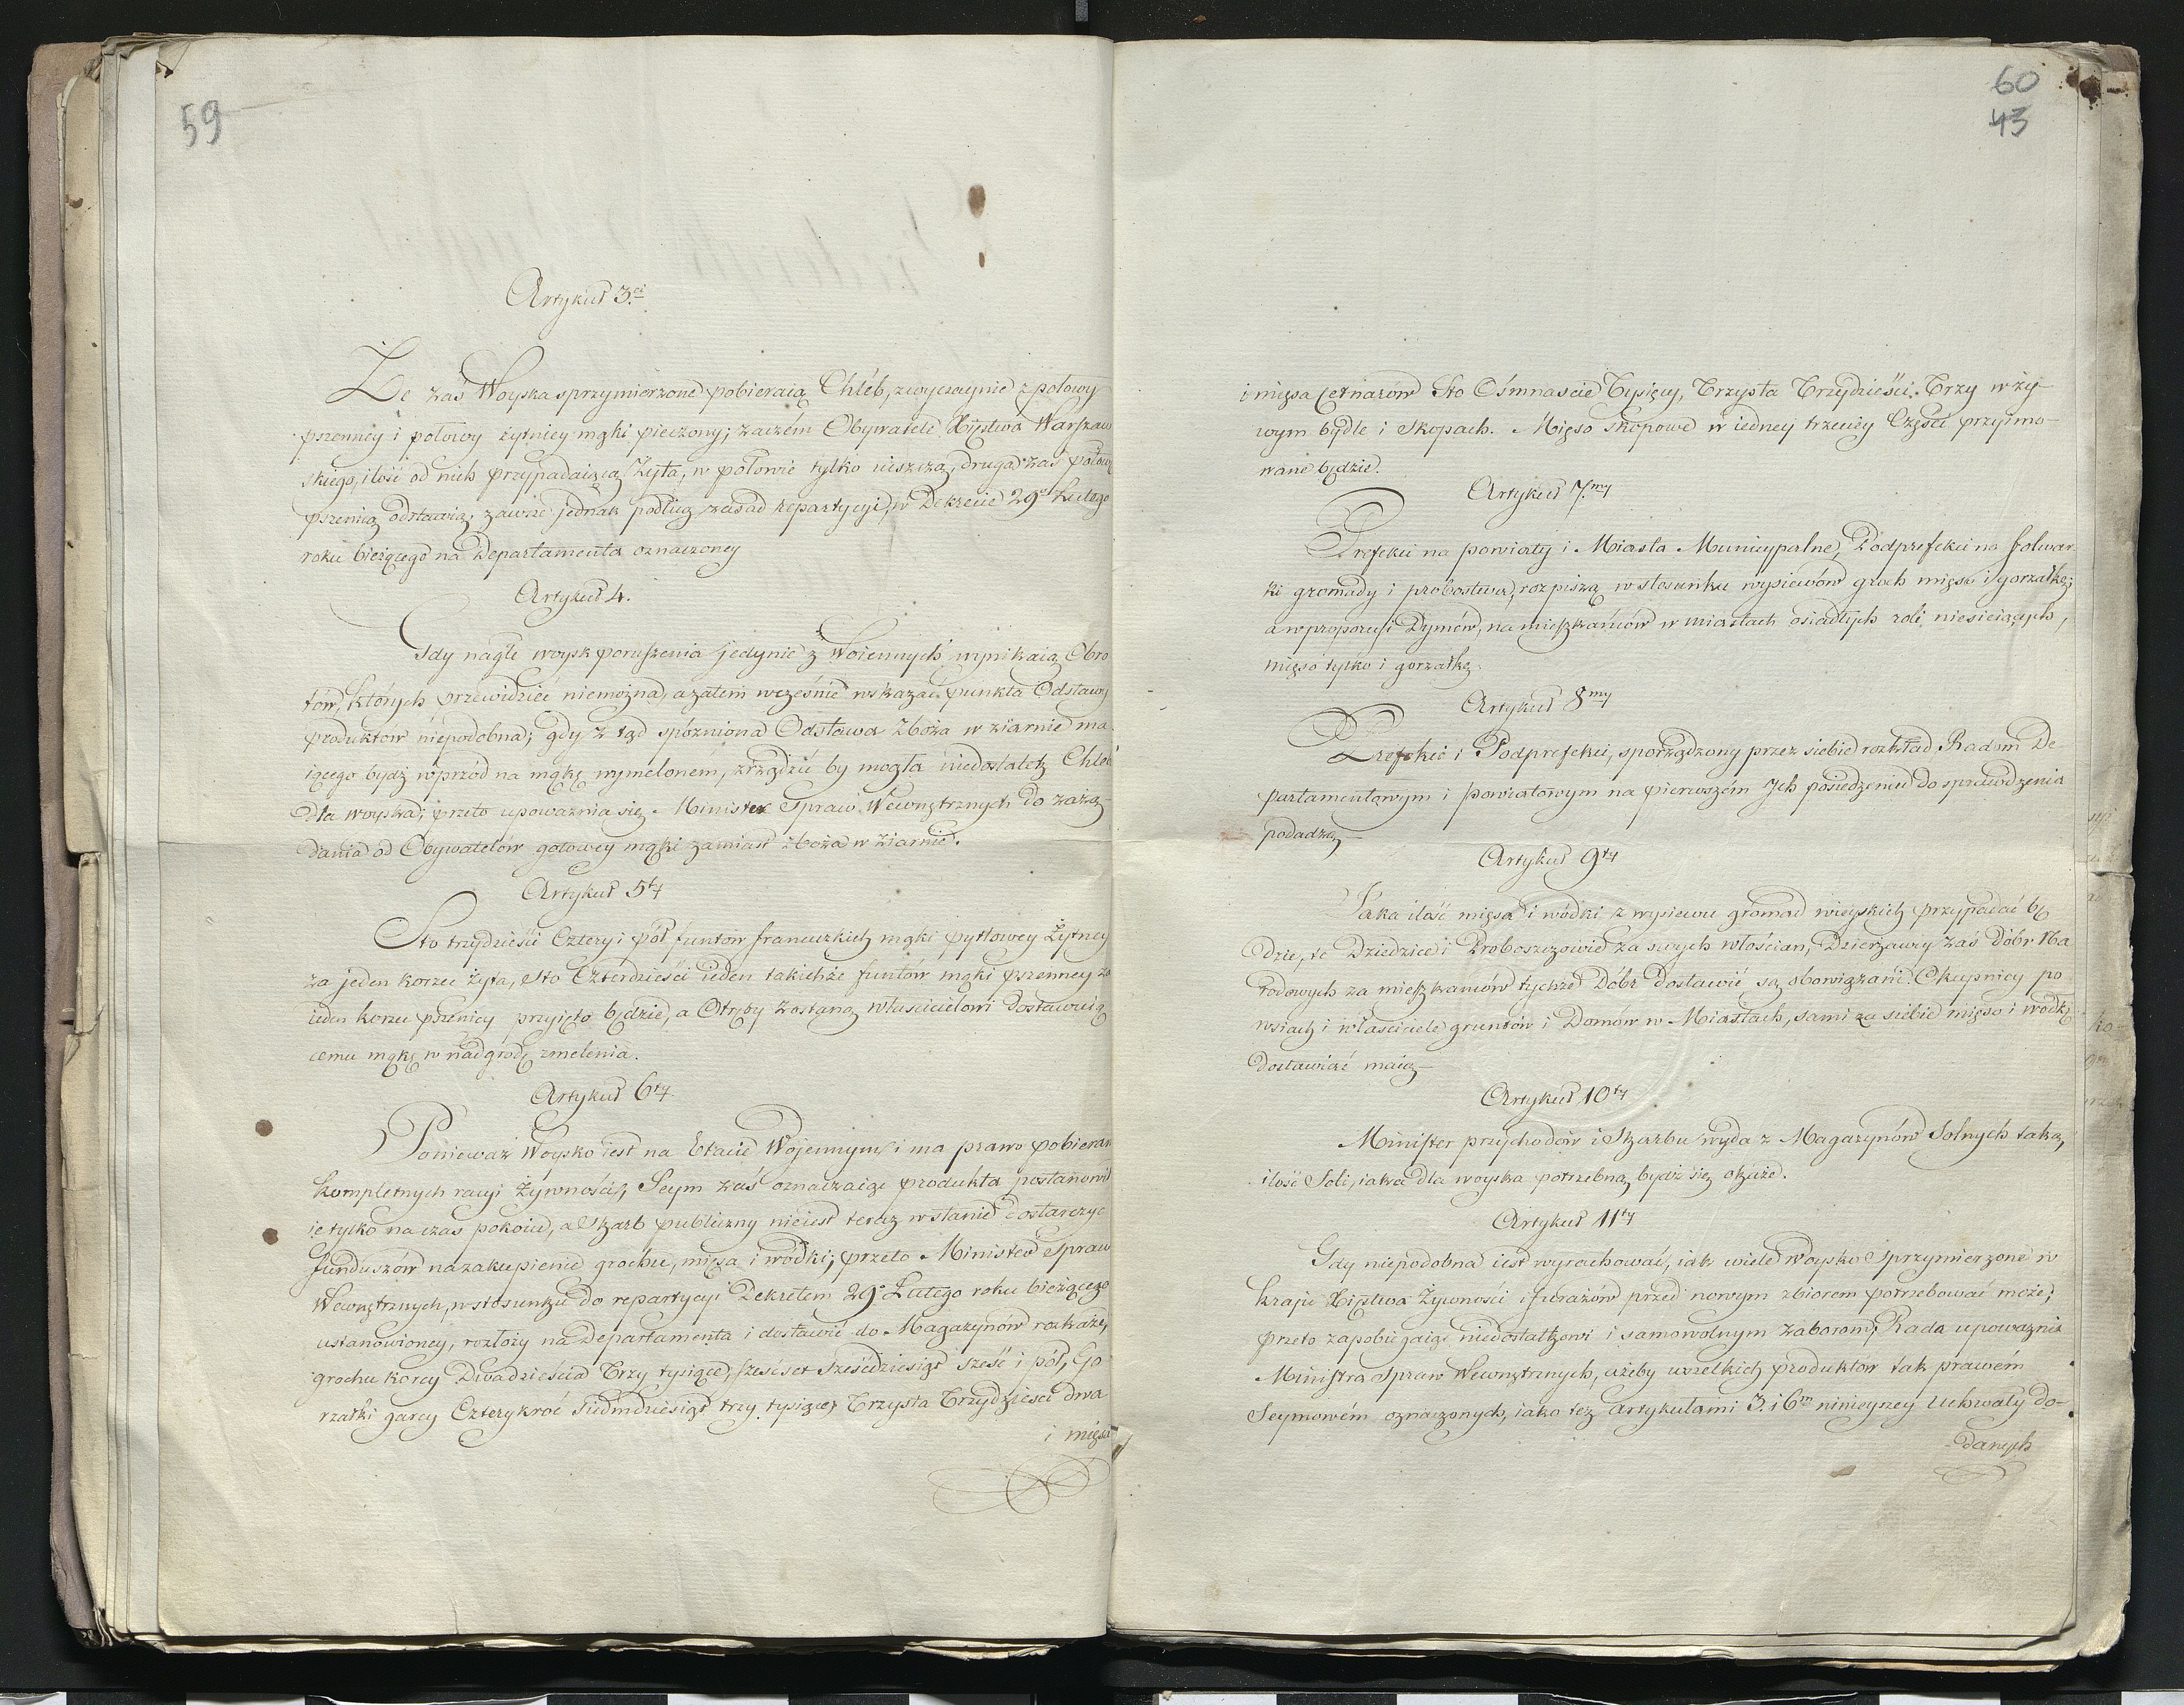 59
Artykuł 3.ci
Że zaś Woyska sprzymierzone pobieraią Chléb, zwyczaynie z połowy
pszenney i połowy żytniey mąki pieczony; zaczém Obywatele Xięstwa Warszaw
skiego, ilość od nich przypadaiącą Żyta, w połowie tylko uiszczą, drugą zaś połowę
pszenicą odstawią; zawsze jednak podług zasad repartycyi, w Dekrecie 29º Lutego
roku bieżącego na Departamenta oznaczoney
Artykuł 4.
Gdy nagłe woysk poruszenia jedynie z Woiennych wynikaią Obro
tów, których przewidzieć niemożna, a zatém wcześnie wskazać punkta Odstawy
produktów niepodobna; gdy z tąd spóźniona Odstawa zboża w ziarnie ma
iącego bydź wprzód na mąkę wymelonem, zrządzić by mogła niedostatek Chleba
dla woyska; przeto upoważnia się Minister Spraw Wewnętrznych do zażą-
dania od Obywatelów gotowey mąki zamiast zboża w ziarnie.
Artykuł 5ty
Sto trzydzieści Cztery i pół funtów francuzkich mąki pytlowey Żytney
za jeden korzec żyta, sto Czterdzieści ieden takichże funtów mąki pszenney za
ieden korzec pszenicy przyięto będzie, a Otręby zostaną właścicielowi dostawuią
cemu mąkę w nadgrodę zmelenia.
Artykuł 6ty
Ponieważ Woysko iest na Etacie Wojennym i ma prawo pobierania
kompletnych racyi Żywności, Seym zaś oznaczaiąc produkta postanowił
ie tylko na czas pokoiu, a Skarb publiczny nieiest teraz w stanie dostarczyć
funduszów na zakupienie grochu, mięsa i wódki; przeto Minister Spraw
Wewnętrznych, w stosunku do repartycyi Dekretem 29º Lutego roku bieżącego
ustanowioney, rozłoży na Departamenta i dostawić do Magazynów rozkaże,
grochu korcy Dwadzieścia Trzy tysiące, sześćset sześćdziesiąt sześć i pół, Go
rzałki garcy Czterykroć Siedmdziesiąt trzy tysiące, Trzysta Trzydzieści dwa
i mięsa
60
43
i mięsa Cetnarów Sto Ośmnaście Tysięcy, Trzysta Trzydzieści Trzy w ży-
wym bydle i Skopach. Mięso skopowe w iedney trzeciéy Części przyimo-
wane będzie.
Artykuł 7.my
Prefekci na powiaty i Miasta Municypalne, Podprefekci na folwar
ki gromady i probostwa, rozpiszą w stosunku wysiewów groch mięso i gorzałkę;
a w proporcyi Dymów, na mieszkańców w miastach osiadłych roli niesieiących,
mięso tylko i gorzałkę.
Artykuł 8my
Prefekci i Podprefekci, sporządzony przez siebie rozkład Radom De
partamentowym i powiatowym na pierwszém Jch posiedzeniu do sprawdzenia
podadzą —
Artykuł 9ty
Jaka ilość mięsa i wódki z wysiewu gromad wieyskich przypadać bę
dzie, te Dziedzice i Proboszczowie za swych włościan, Dzierzawcy zaś Dóbr Na
rodowych za mieszkańców tychże Dóbr dostawić są obowiązani. Okupnicy po
wsiach i właściciele gruntów i Domów w Miastach, sami za siebie mięso i wódkę
dostawiać maią —
Artykuł 10ty
Minister przychodów i Skarbu wyda z Magazynów Solnych taką,
ilość Soli, iaka dla woyska potrzebną bydź się okaże.
Artykuł 11ty
Gdy niepodobna iest wyrachować, iak wiele woysko Sprzymierzone w
kraju Xięstwa Żywności i furażów przed nowym zbiorem potrzebować może;
przeto zapobiegaiąc niedostatkowi i samowolnym zaborom, Rada upoważnia
Ministra Spraw Wewnętrznych, ażeby wszelkich produktów tak prawém
Seymowém oznaczonych, iako też artykułami 3. i 6m ninieyszey Uchwały do-
danych